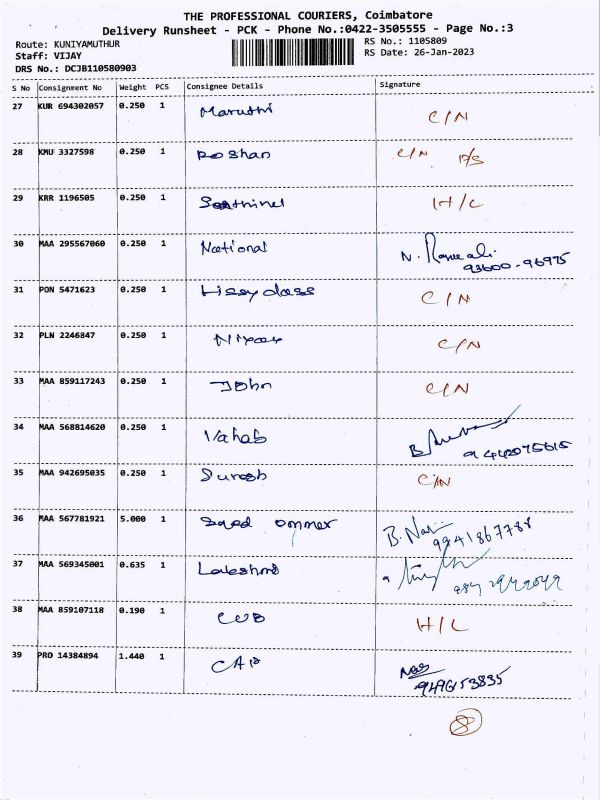 THE PROFESSIONAL COURIERS, Coimbatore
Delivery Runsheet - PCK - Phone No.:0422-3505555 - Page No.:3
Route: KUNIYAMUTHUR
RS No.: 1105809
Staff: VIJAY
RS Date: 26-Jan-2023
DRS No.: DCJB110580903
S No Consignment No Weight PCS Consignee Details Signature
27 KUR 694302057 0.250 1 Maruthi C/N
28 KMU 3327598 0.250 1 Roshan C/N
29 KRR 1196505 0.250 1 H/C
30 MAA 295567060 0.250 1 National N.
93600-96975
31 PON 5471623 0.250 1 Lissy dass C/N
32 PLN 2246847 0.250 1 C/N
33 MAA 859117243 0.250 1 John C/N
34 MAA 568814620 0.250 1 Vahab
35 MAA 942695035 0.250 1 Suresh C/N
36 MAA 567781921 5.000 1 Saed ommer B.
9941867788
37 MAA 569345001 0.635 1 Lakshmi
38 MAA 859107118 0.190 1 CUB H/L
39 PRO 14384894 1.440 1
9496153835
8